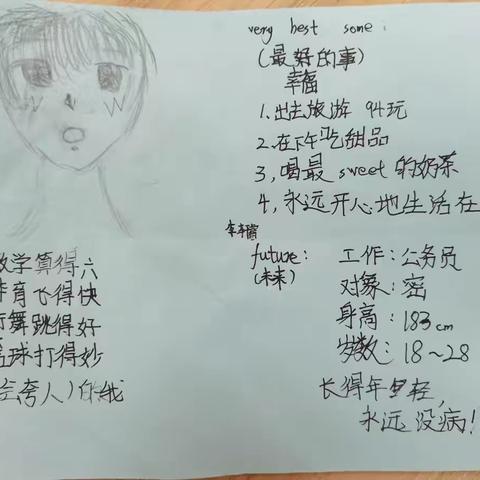 very best some
(最好的事)
幸福
1.出去旅游 94玩
2.在下午吃甜品
3,喝最sweet的奶茶
4,永远开心地生活在
future:
(未来)
工作:公务员
对象:密
身高:183cm
岁数:18~28
长得年轻,
永远没病!
数学算得六
体育飞得快
街舞跳得好
球打得妙
会夸人)的我